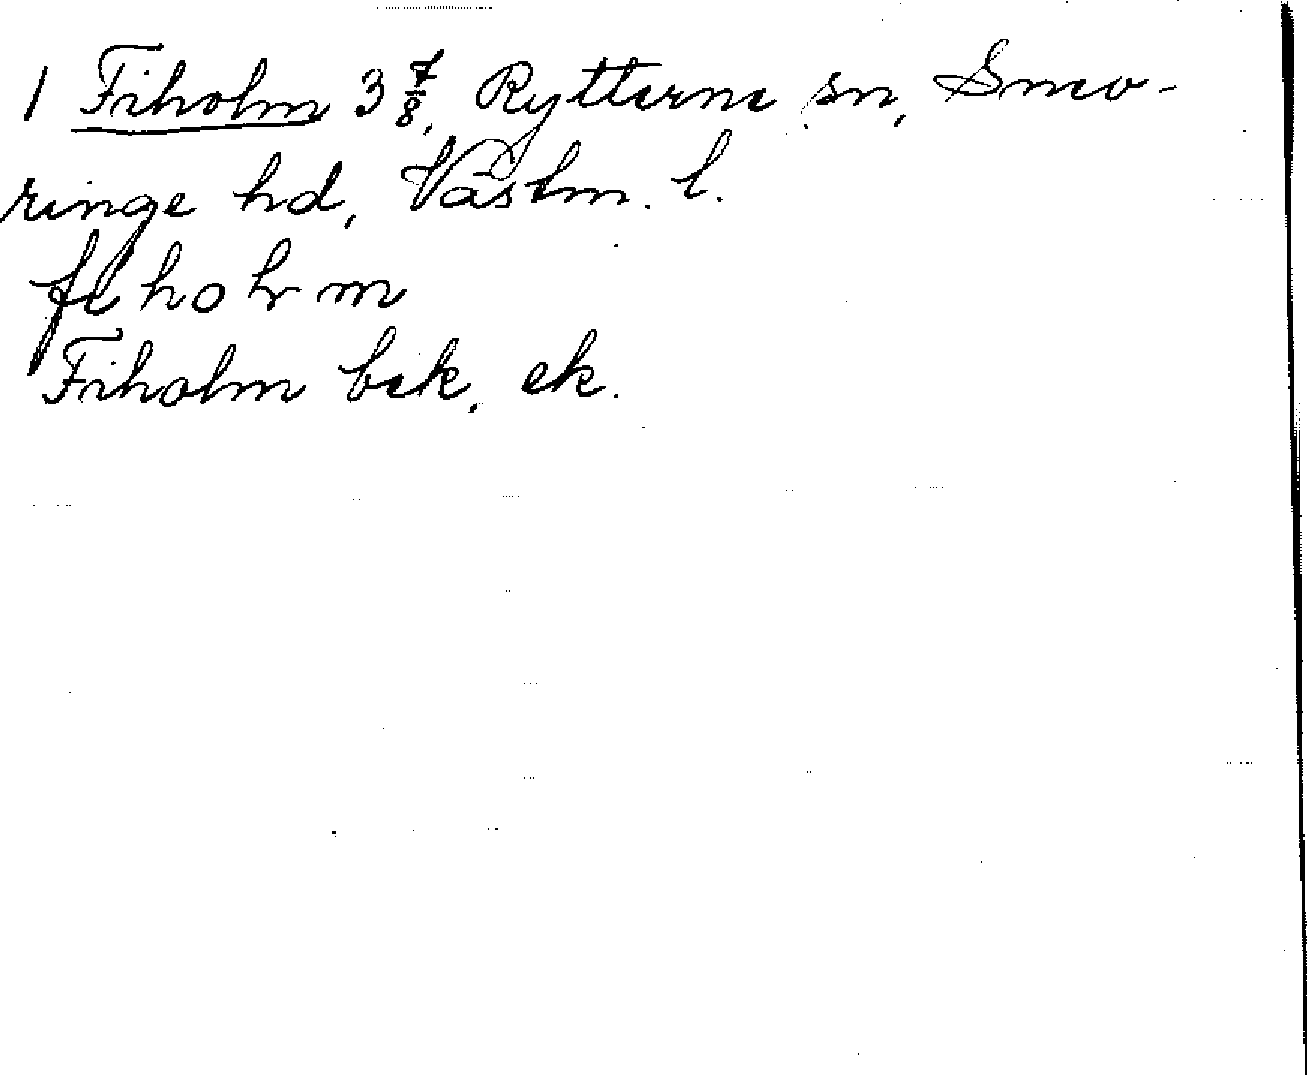 1 Fiholm 3 7/8, Rytterne sn, Snev-
ringe hd, Västm. l.
fiholm
Fiholm bek, ek.